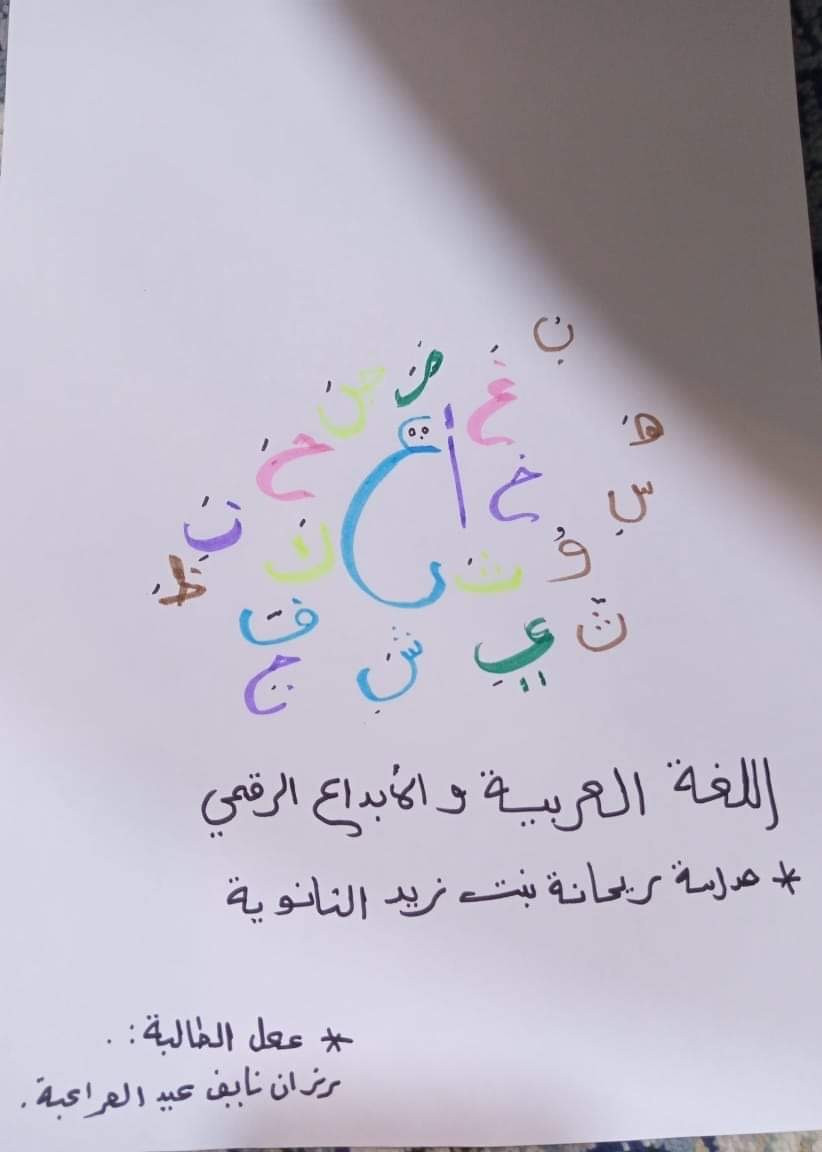 نِ
ضَ
صَ
غَ
هَ
خَ
أ
خَ
سِ
نِ
كَ
ظَ
ثَ
وُ
فَ
ي
ثَ
شِ
ج
اللغة العربية و الأبداع الرقمي
* مدرسة ريحانة بنت زيد الثانوية
* عمل الطالبة: .
رزان نايف عيد المراعبة.